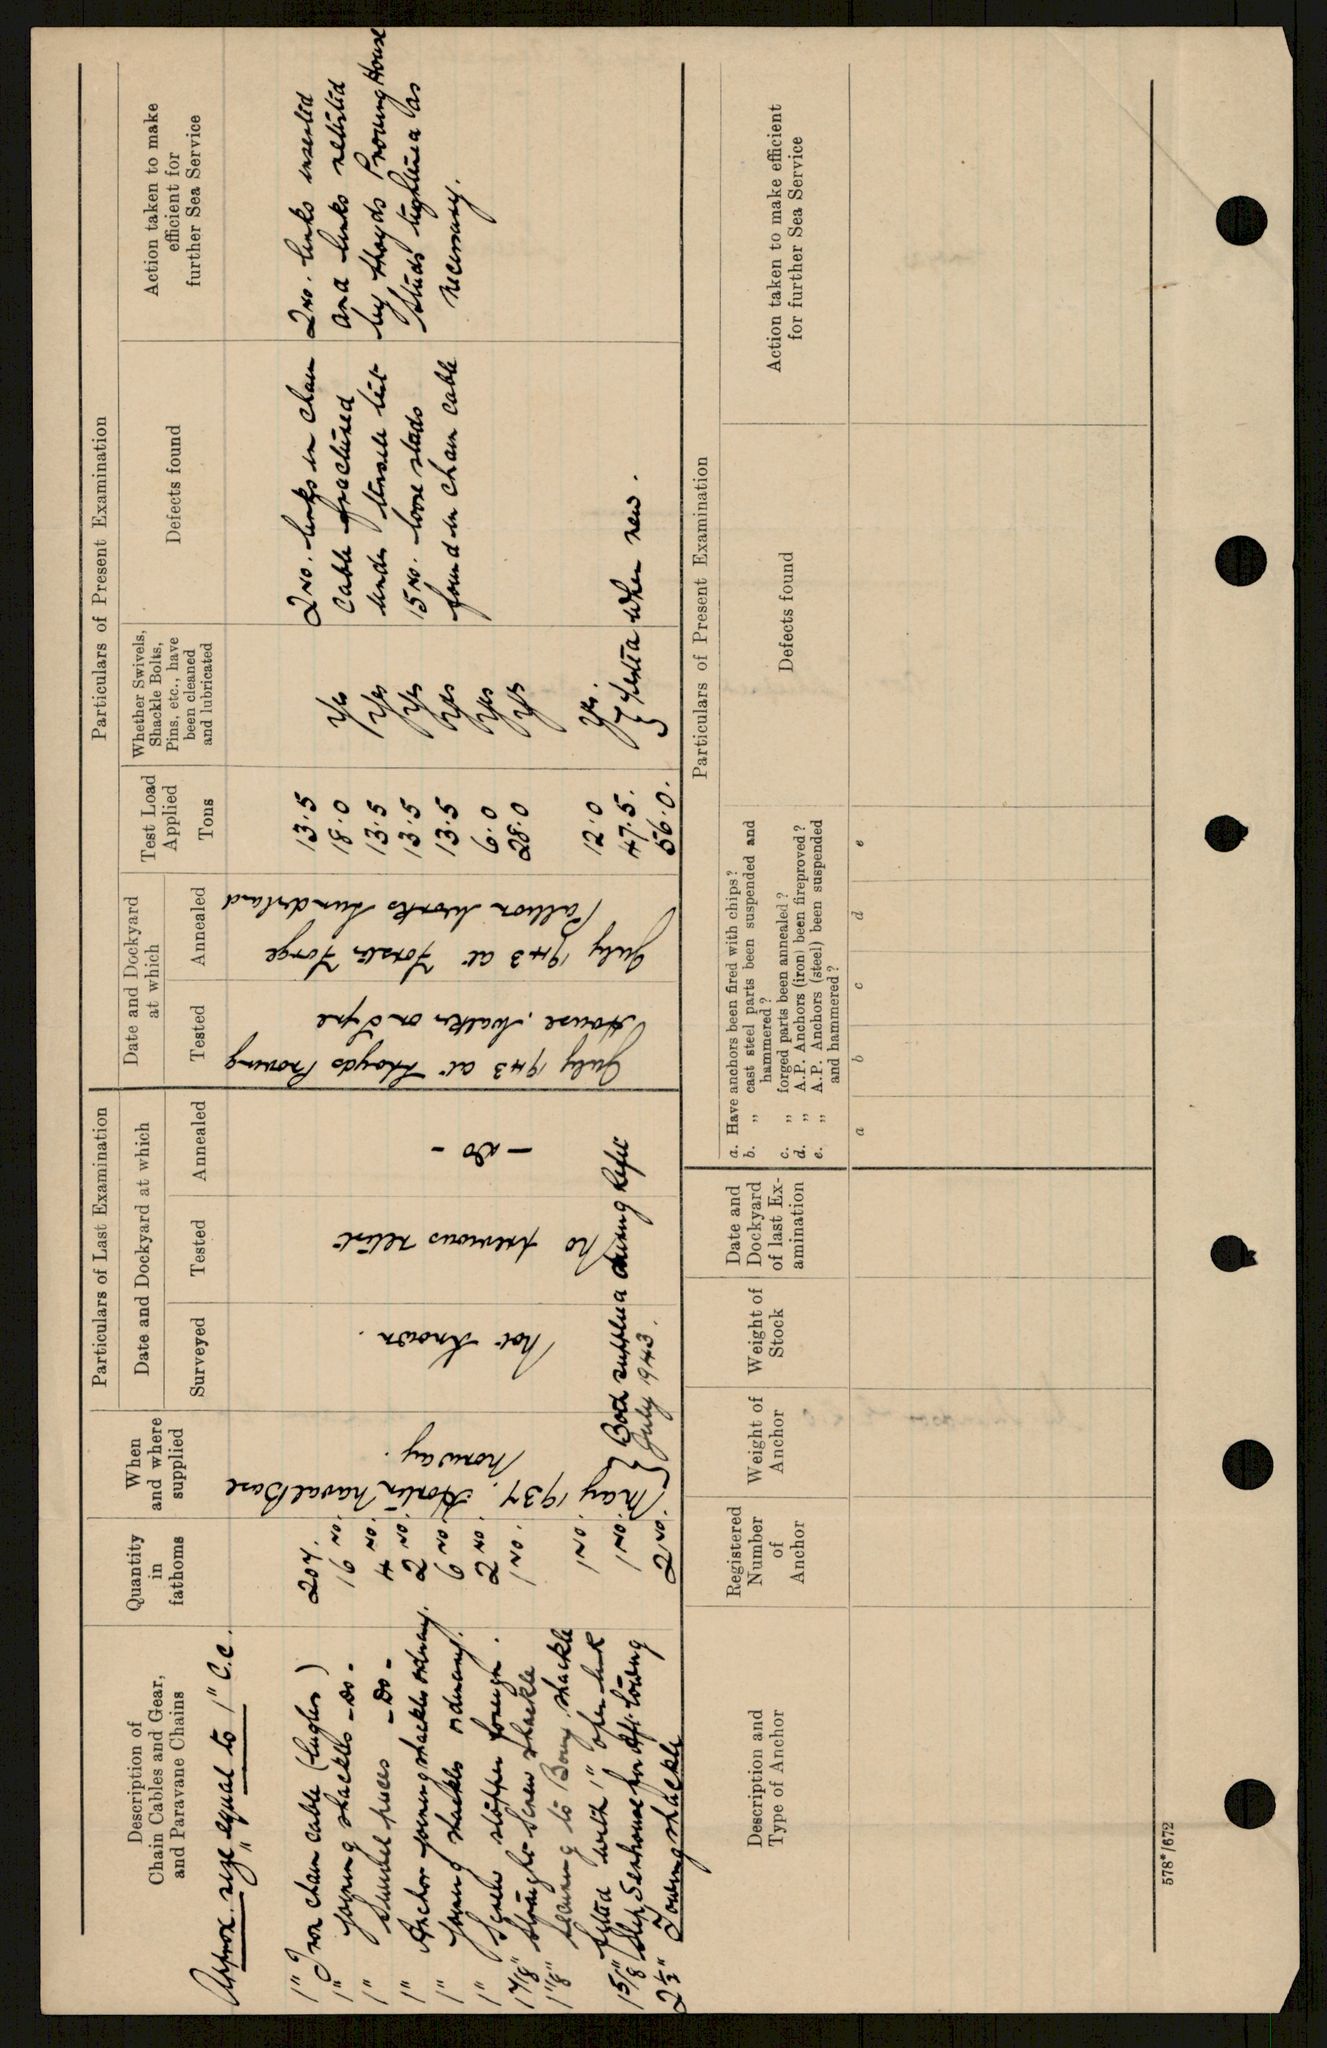 Description of
Chain Cables and Gear,
and Paravane Chains
Quantity
in
fathoms
When
and where
supplied
Particulars of Last Examination
Date and Dockyard at which
Surveyed
Tested
Annealed
Date and Dockyard
at which
Tested
Annealed
Test Load
Applied
Tons
Particulars of Present Examination
Whether Swivels,
Shackle Bolts,
Pins, etc., have
been cleaned
and lubricated
Defects found
Action taken to make
efficient for
further Sea Service
Approx. size equal to 1" C.C.
1" Iron chain cable (lugless) 207. 13.5
1" joining shackles - Do - 16 No. 18.0 Yes
1" Swivel pieces - Do - 4 No. 13.5 Yes
1" Anchor joining shackles ordinary. 2 No. 13.5 Yes
1" joining shackles ordinary. 6 No. 13.5 Yes
1" Screw stopper foreign. 2 No. 6.0 Yes
1 7/8" straight screw shackle 1 No. 28.0 Yes
1 1/8" securing to Bouy shackle
fitted with 1" open link 1 No. 12.0 Yes.
1 5/8" Slip Senhouse for aft towing 1 No. 47.5.
2 1/2" Towing shackle 2 No. 56.0.
May 1937. Horten Naval Base
Norway.
} Both supplied during Refit
July 1943.
Not Known.
No previous retest
- Do -
July 1943 at Lloyds Proving
House, Walker on Tyne
July 1943 at Forster Forge
Pallion Works Sunderland
} Tested when new.
2 No. links in chain
cable fractured
under tensile test
15 No. loose studs
found in chain cable
2 No. links inserted
and links retested
by Lloyds Proving House
Studs tightened as
necessary.
Description and
Type of Anchor
Registered
Number
of
Anchor
Weight of
Anchor
Weight of
Stock
Date and
Dockyard
of last Ex-
amination
Particulars of Present Examination
a. Have anchors been fired with chips?
b. „ cast steel parts been suspended and
hammered?
c. „ forged parts been annealed?
d. „ A.P. Anchors (iron) been fireproved?
e. „ A.P. Anchors (steel) been suspended
and hammered?
a b c d e
Defects found
Action taken to make efficient
for further Sea Service
578*/672